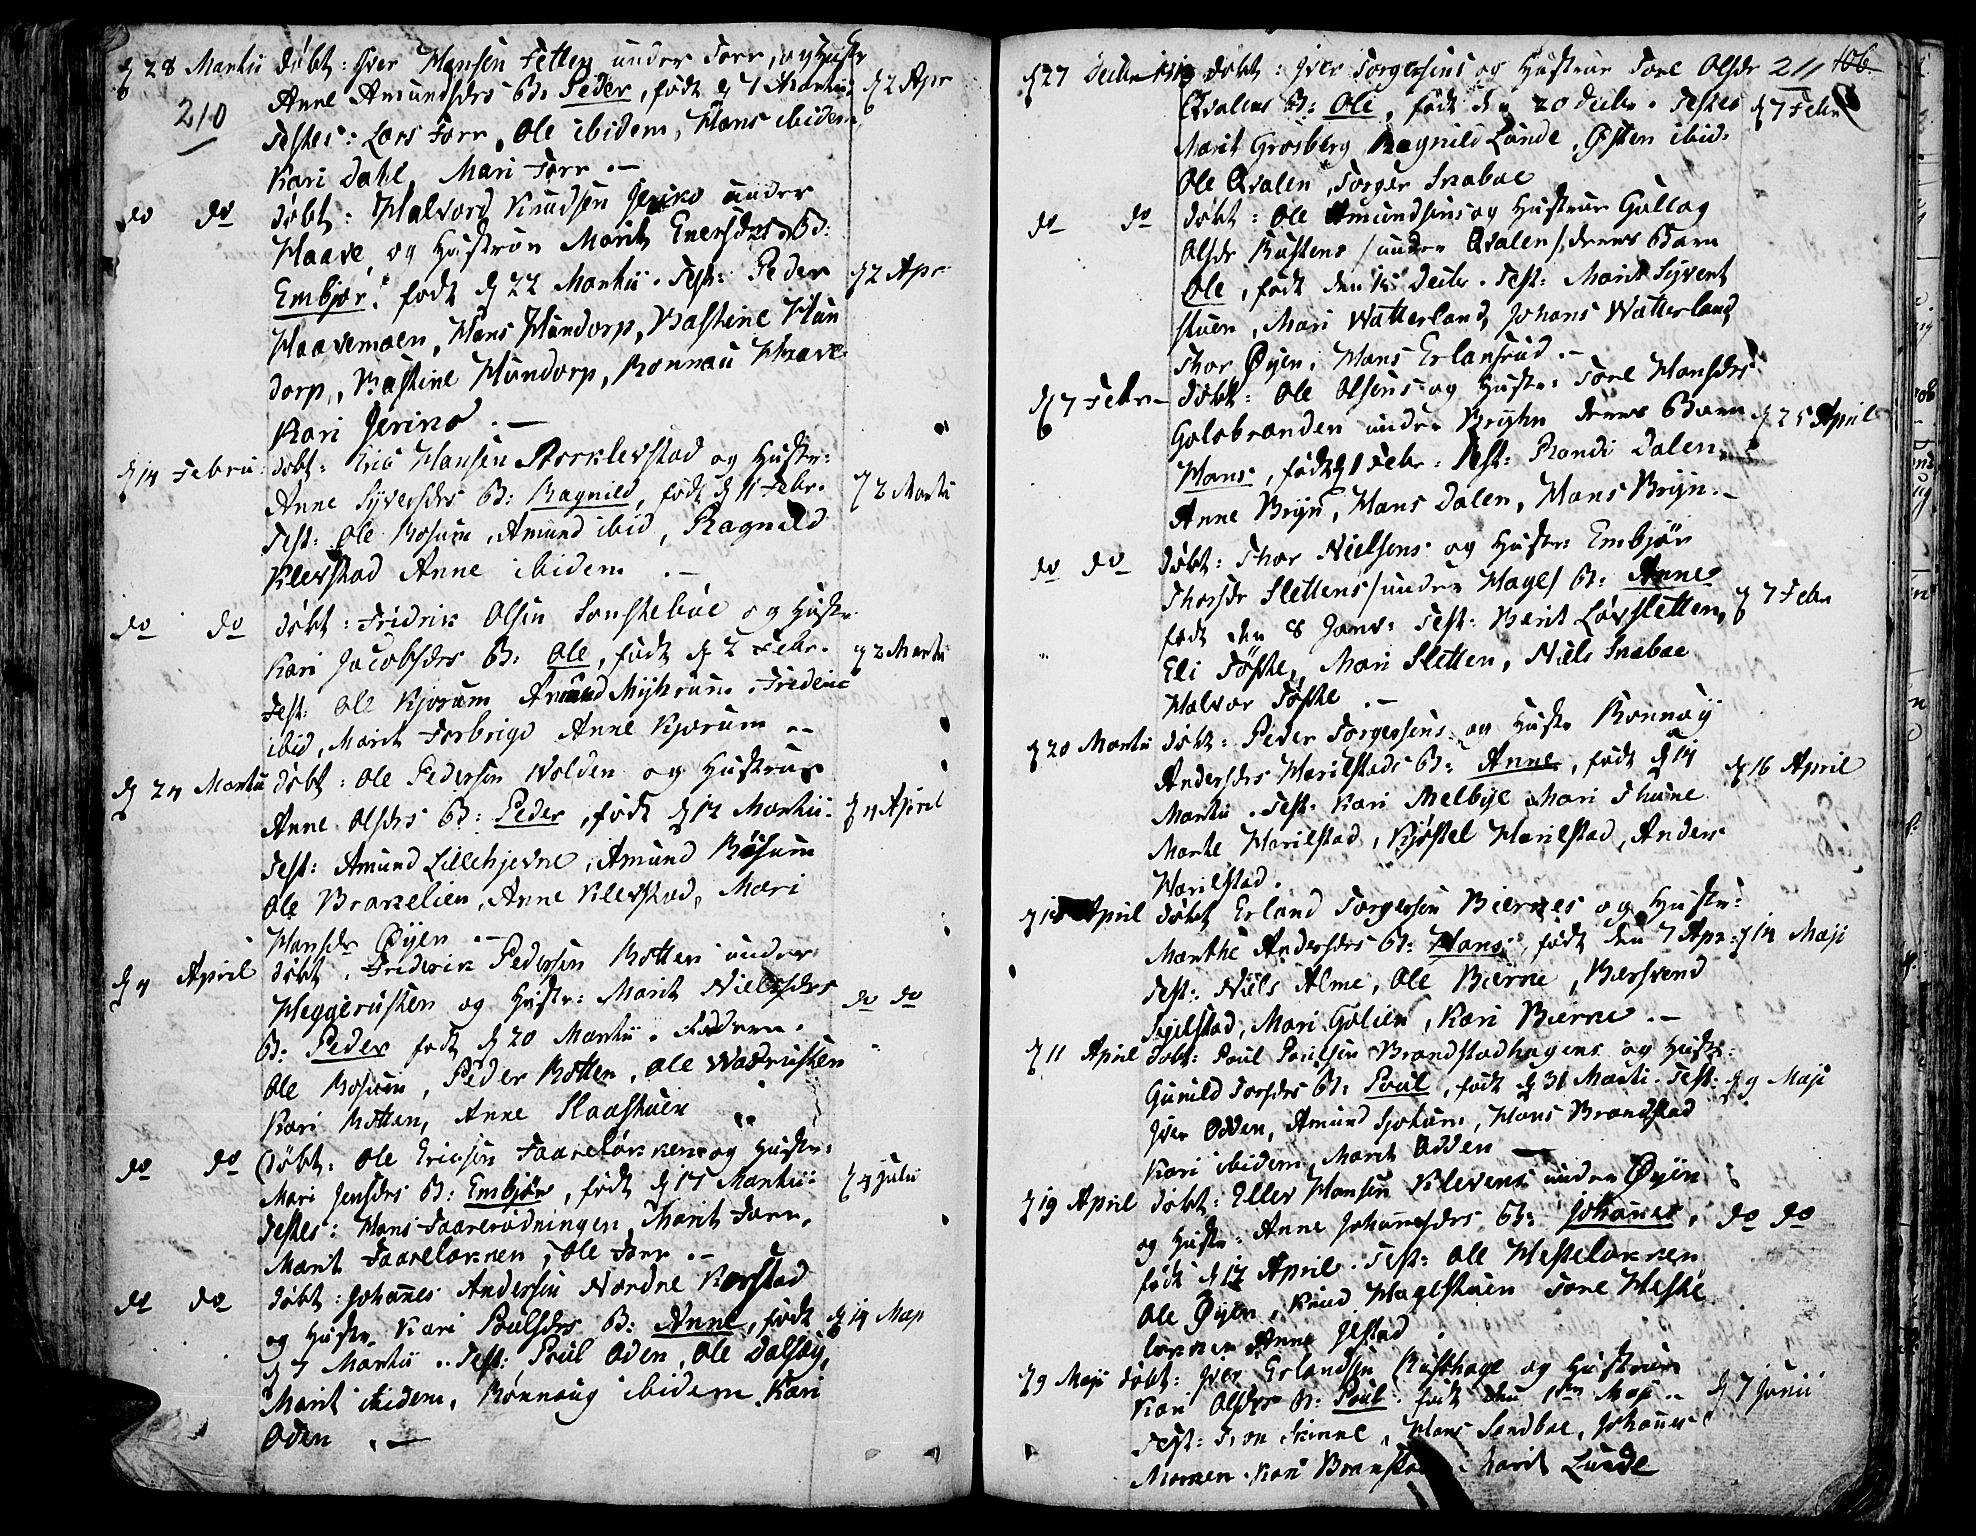 d 28 Martii døbt: Iver Hansen Sletten under Forr, og Hustr
210 Anne Amundsdr B: Peder, født d 7 Martii d 2 Apr
Testes: Lars Forr, Ole ibidem, Hans ibidem,
Kari Dahl, Mari Forr.—
do do døbt: Halvord Knudsen Jeriko under
Haave, og Hustrue Marit Enersdr B:
Embjør, født d 22 Martii. Test: Peder d 2 Apr
Haavemoen, Hans Hundorp, Bastine Hun
dorp, Bastine Hundorp, Ronnau
Kari Jeriko.—
d 14 Febru: døbt: Eric Hansen Klevstad og Hustr:
Anne Syversdr B: Ragnild, født d 11 Febr. d 2 Martii
Test: Ole Rosum, Amund ibid, Ragnild
Klevstad Anne ibidem.—
do do døbt: Fridrik Olsen Sonstebøe og Hustr
Kari Jacobsdr B: Ole, født d 2 Febr. d 2 Martii
Test: Ole Kjorum Amund Frideric
ibid, Marit Forbrigd Anne Kjorum
d 24 Martii døbt: Ole Pedersen Nolden og Hustrue
Anne Olsdr B: Peder, født d 12 Martii. d 4 April
Test: Amund Lillehjevne, Amund Røsum
Ole Brakelien, Anne Klevstad, Mari
Hansdr Øyen
d 4 April døbt. Friderik Pedersen Botten under
Heggerusten og Hustr: Marit Nielsdr do do
B: Peder født d 20 Martii. Faddere.
Ole Rosum, Peder Botten, Ole Wadrusten
Kari Botten, Anne Slaastuen
do do Døbt: Ole Ericsen Faareløkken og Hustr:
Mari Jensdr B: Embjør, født d 17 Martii: d 4 Julii
Testes: Hans Faarerødningen, Marit Forr,
Marit Faareløkken, Ole Forr.—
do do døbt: Johanes Andersen Nordre Korstad
og Hustr. Kari Poulsdr B: Anne, født d 14 Maji
d 7 Martii. Test: Poul Oden, Ole Dalsøy,
Marit ibidem, Rønnaug ibidem Kari
Oden.—
d 27 Decbr døbt: Iver Torgersens og Hustrue Tore Olsdr 211 106
Qvalens B: Ole, født den 20 Decbr. Testes d 7 Febr
Marit Grosberg Ragnild Lunde, Østen ibid:
Ole Qvalen, Torger Inabae
do do døbt: Ole Amundsens og Hustrue Gullog
Olsdr Rustens / under Qvalen / deres Barn
Ole, født den 15 Decbr. Test: Marit Syvert
stuen, Mari Watterland, Johans Watterland
Thor Øyen, Hans Erlansrud.—
d 7 Febr døbt: Ole Olsens og Hustr: Tore Hansdr
Golobranden under Bryhn deres Barn d 25 April
Hans, født d 1 Febr: Test: Randi Dalen,
Anne Bryn, Hans Dalen, Hans Bryn.—
do do døbt: Thor Nielsens og Hustr: Embjør
Thorsdr Slettens / under Hage / B: Anne
født den 8 Janv: Test: Berit Løvsletten, d 7 Febr
Eli Tøfte, Mari Sletten, Niels Inabae
Halvor Tofte.—
d 20 Martii døbt: Peder Torgersens og Hustr Ronnøy
Andersdr Harilstads B: Anne, født d 14 d 16 April
Martii. Test: Kari Melbye Mari Thune
Marte Harilstad, Kjøstel Harilstad, Anders
Harilstad.
April døbt Erland Torgersen Biernes og Hustr:
Marthe Andersdr B: Hans, født den 7 Apr: d 14 Maji
Test: Niels Alme, Ole Bierne, Bersvend
Iyelstad, Mari Golien, Kari Bierne.—
d 11 April døbt: Poul Poulsen Brandstadhagens og Hustr:
Gunild Torsdr B: Poul, født d 31 Marti. Test: d 9 Maji
Iver Odden, Amund Sjotum, Hans Brandstad
Kari ibidem, Marit Odden—
d 19 April døbt: Ellev Hansen Klevens under Øyen
og Hustr: Anne Johannesdr B: Johanes, do do
født d 12 April. Test: Ole Hesteløkken
Ole Øyen, Knud Hagestuen Tore Heste
løkken Anne Jestad
d 9 Maji døbt: Iver Erlandsen Rusthage og Hustrue
Kari Olsdr B: Poul født den 1ste Maji d 7 Junii
Test: Skinne, Hans Sandboe, Johanes
Moenen. Kari Marit Lunde